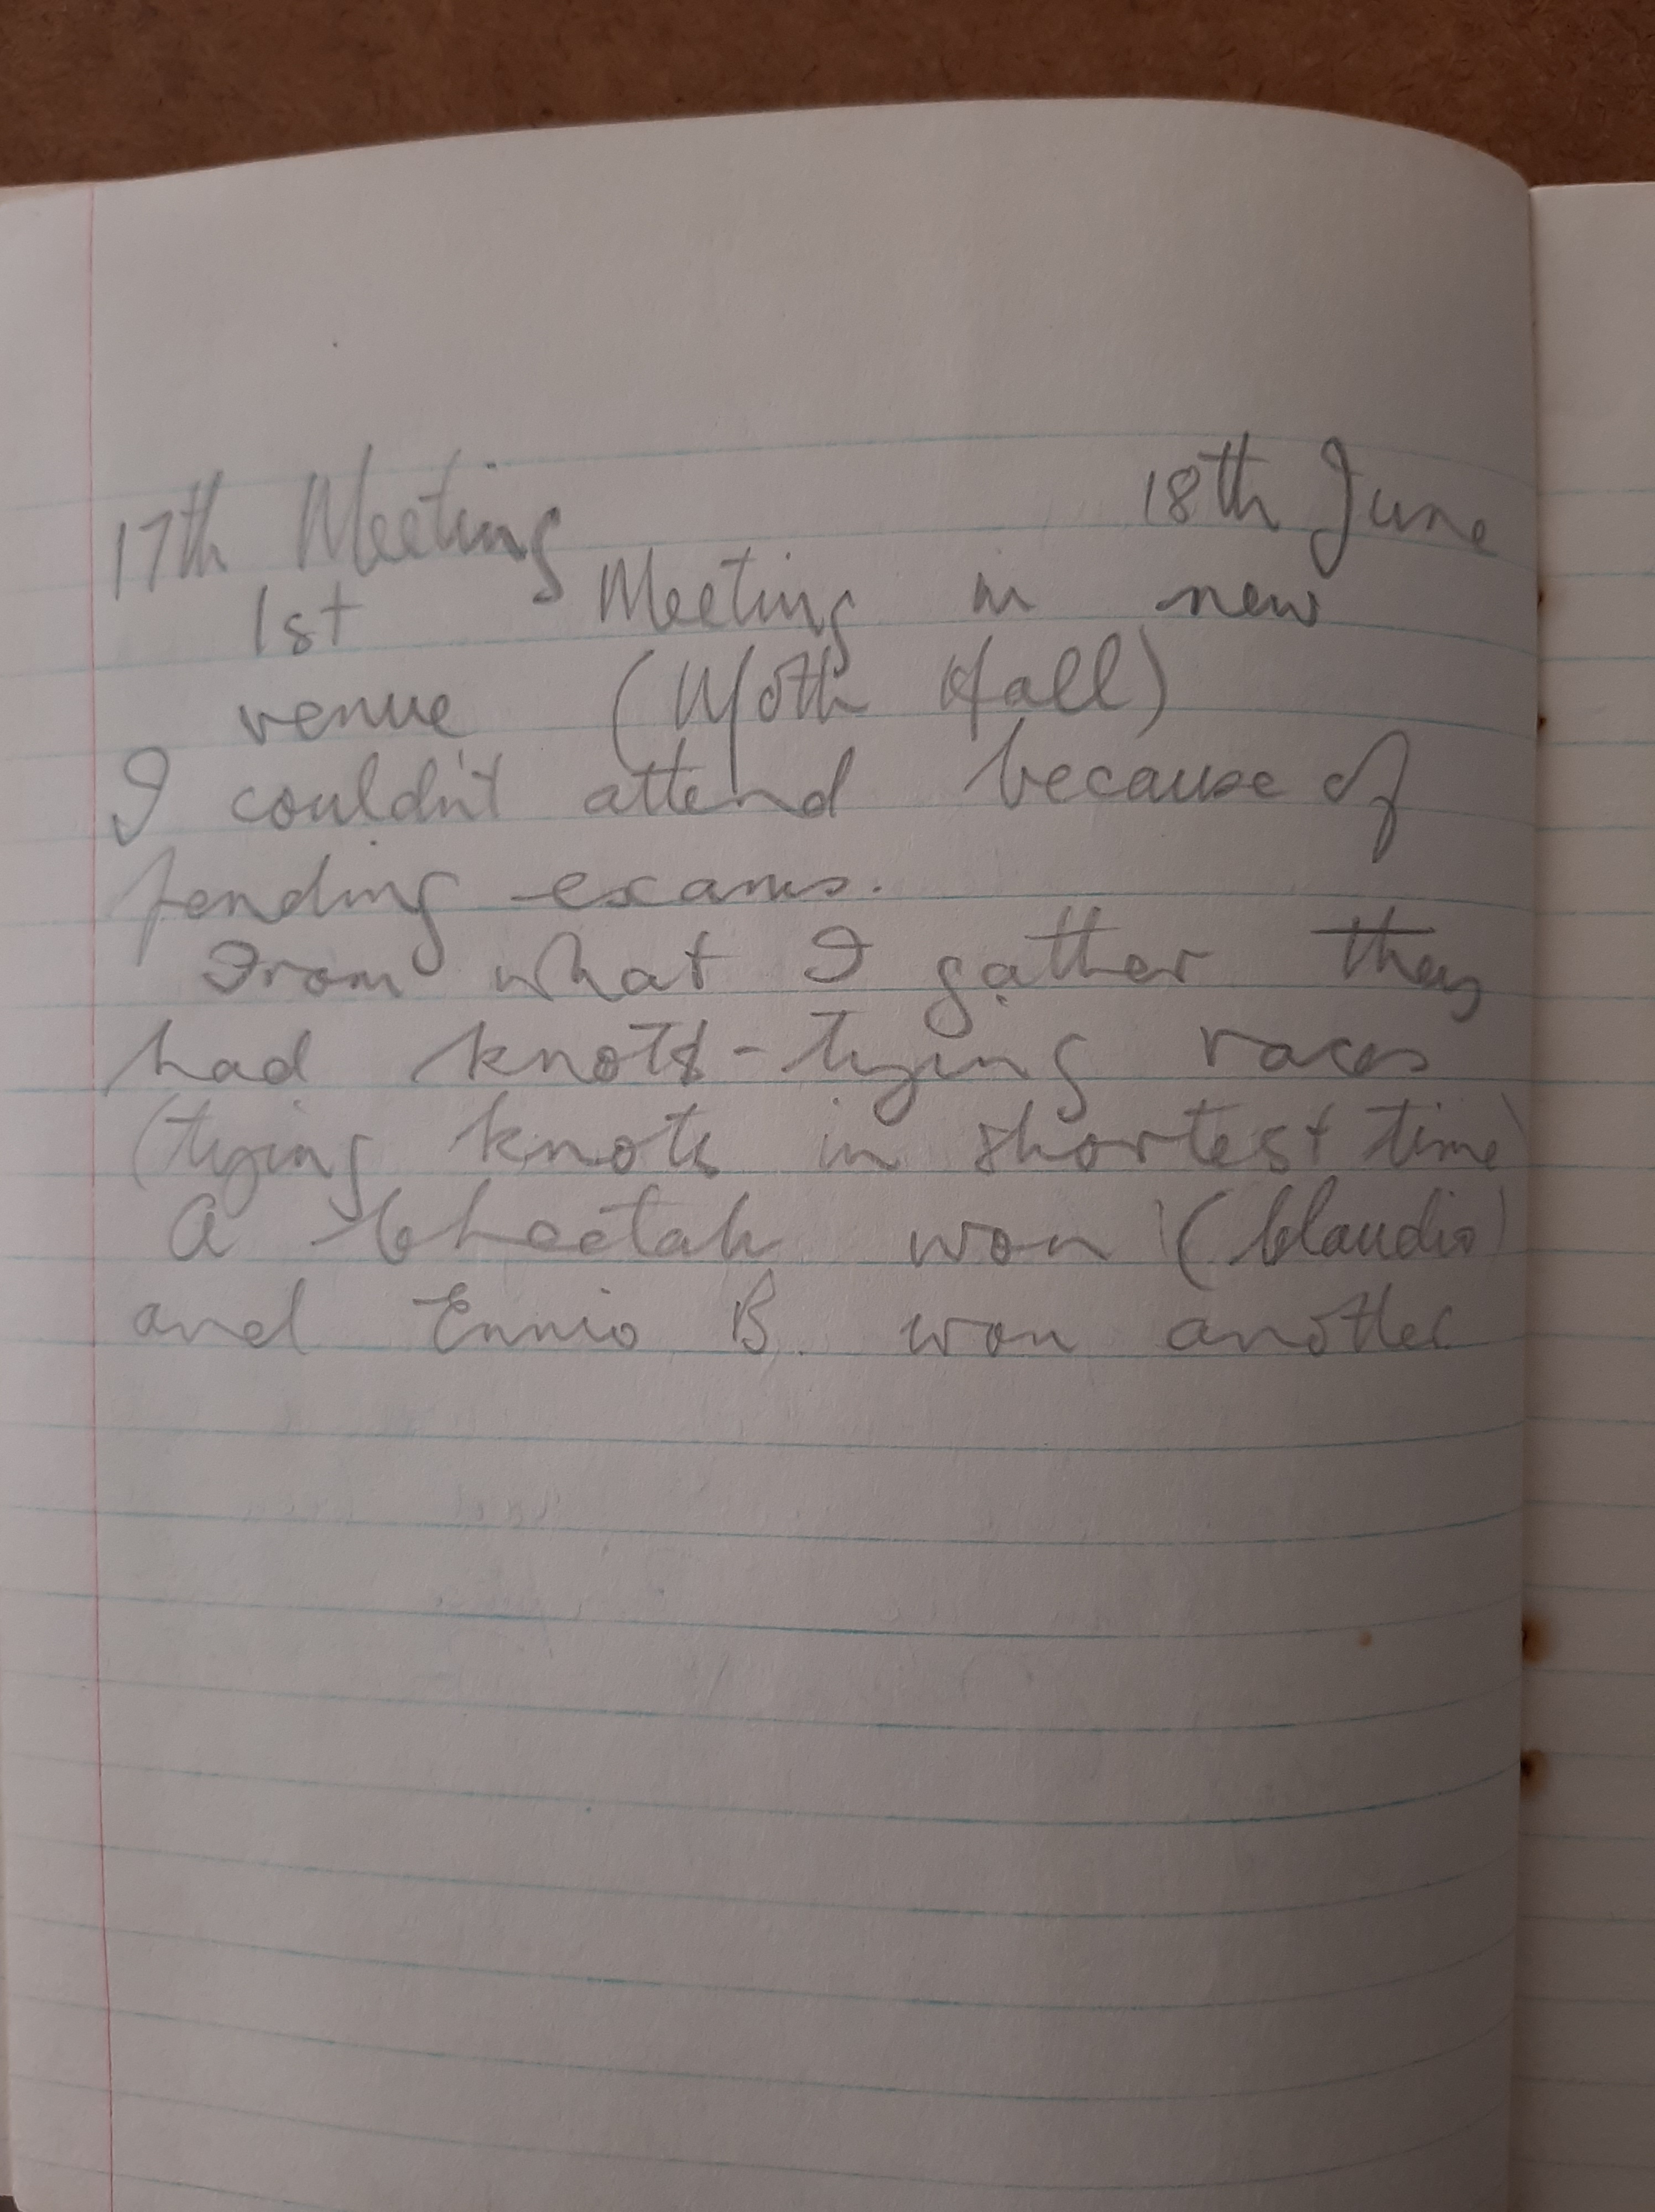 17th Meeting 18th June
1st Meeting in new
venue (Moth Hall)
I couldn't attend because of
pending exams.
From what I gather they
had knots-tying races
(tying knots in shortest time)
A Cheetah won (Claudio)
and Ennio B. won another